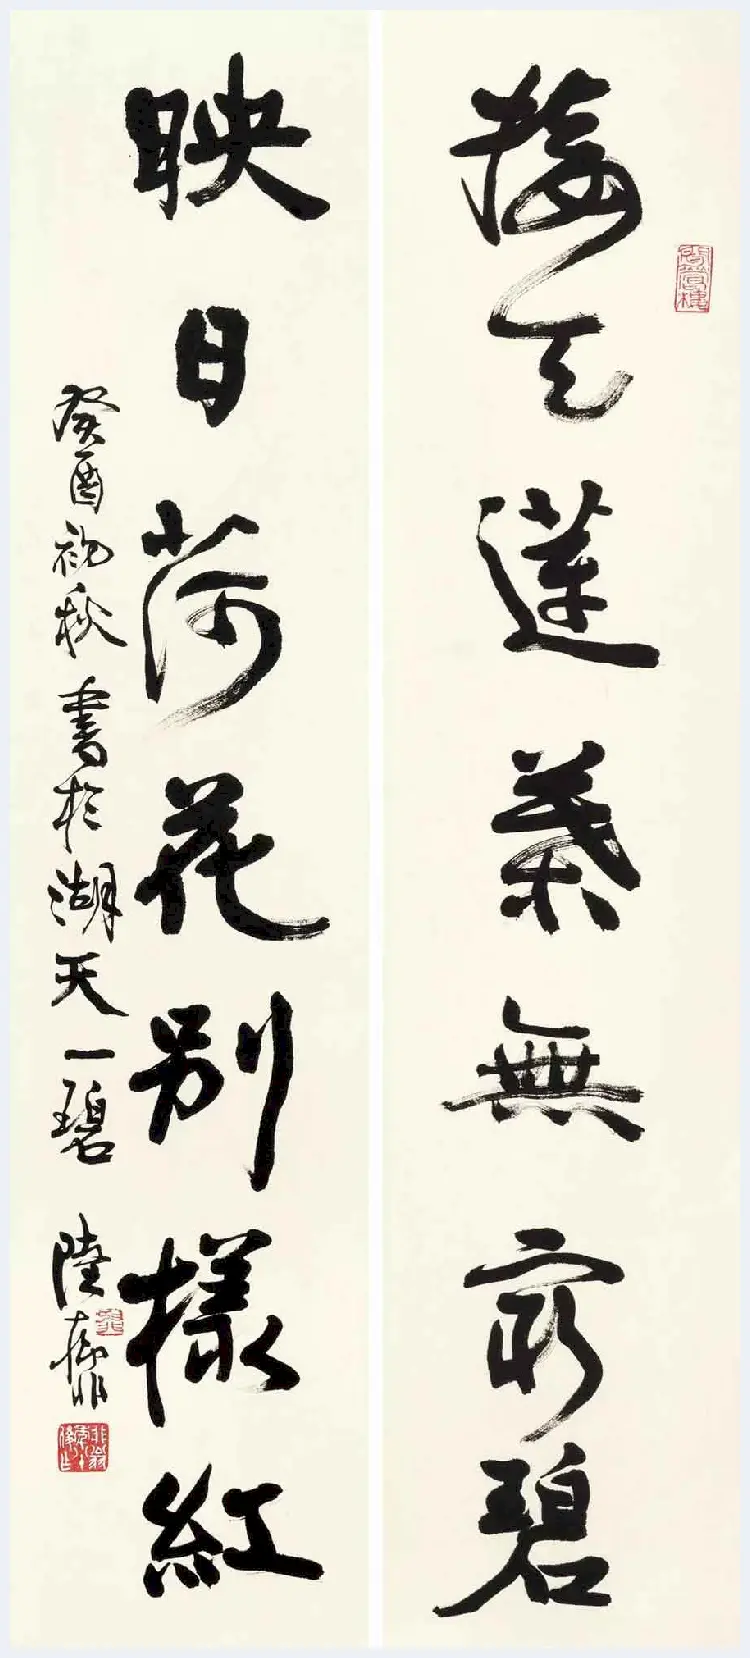 接天蓮葉無窮碧
映日荷花別樣紅
癸酉初秋書於湖天一碧
陸抑非